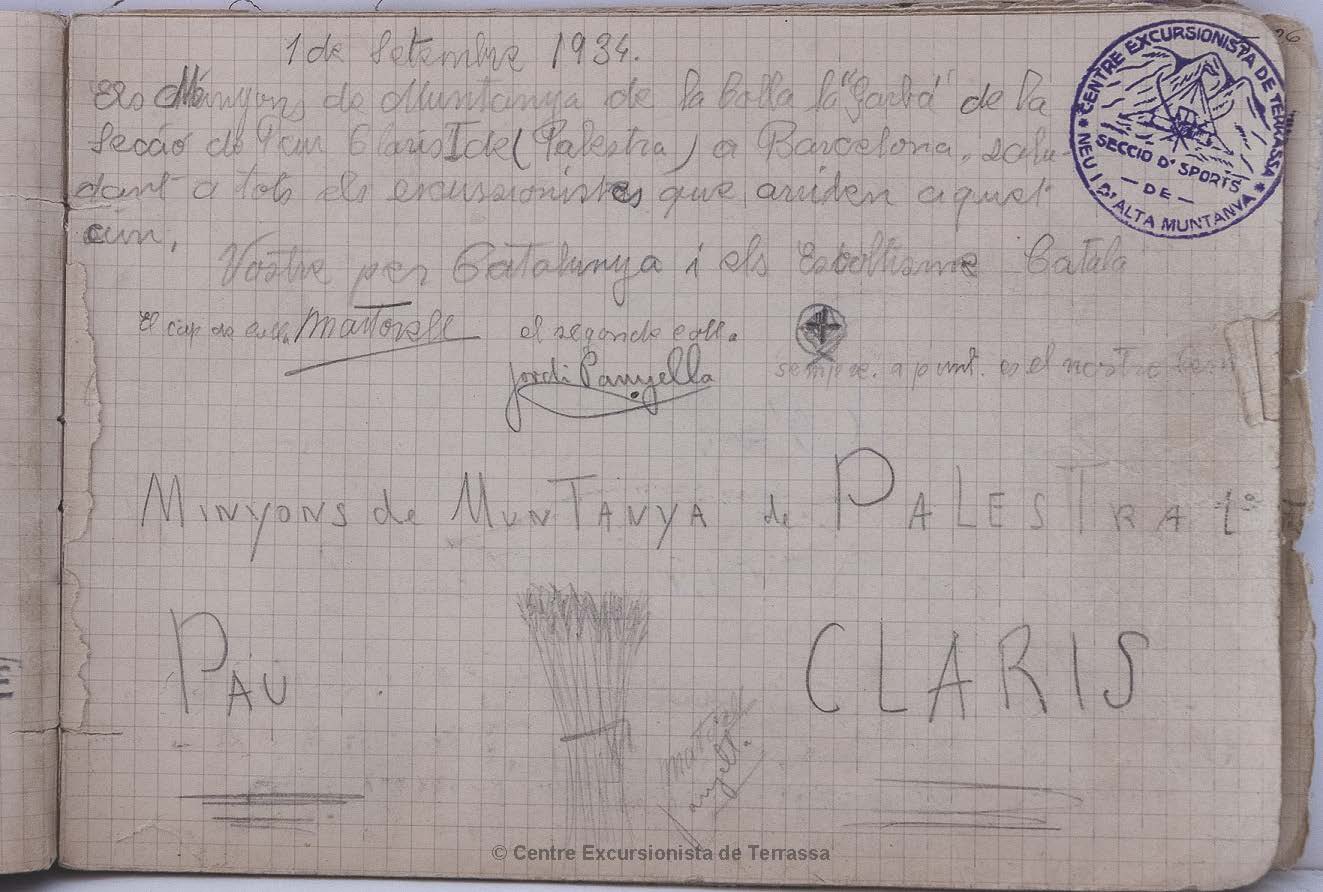 1 de Setembre 1934.
Els Minyons de Muntanya de la Colla la "Garba" de la
Secció de Pau Claris I de (Palestra) a Barcelona, salu-
dant a tots els excursionistes que arriden aquet
cim,
Vostre per Catalunya i els Escoltisme Català
El cap de colla Martorell el segon de coll.
Jordi Panyella
sempre. a punt. es el nostre
MINYONS de MUNTANYA de PALESTRA 1º
PAU CLARIS
CENTRE EXCURSIONISTA DE TERRASSA
SECCIO D'SPORTS
— DE —
NEU I D'ALTA MUNTANYA
© Centre Excursionista de Terrassa